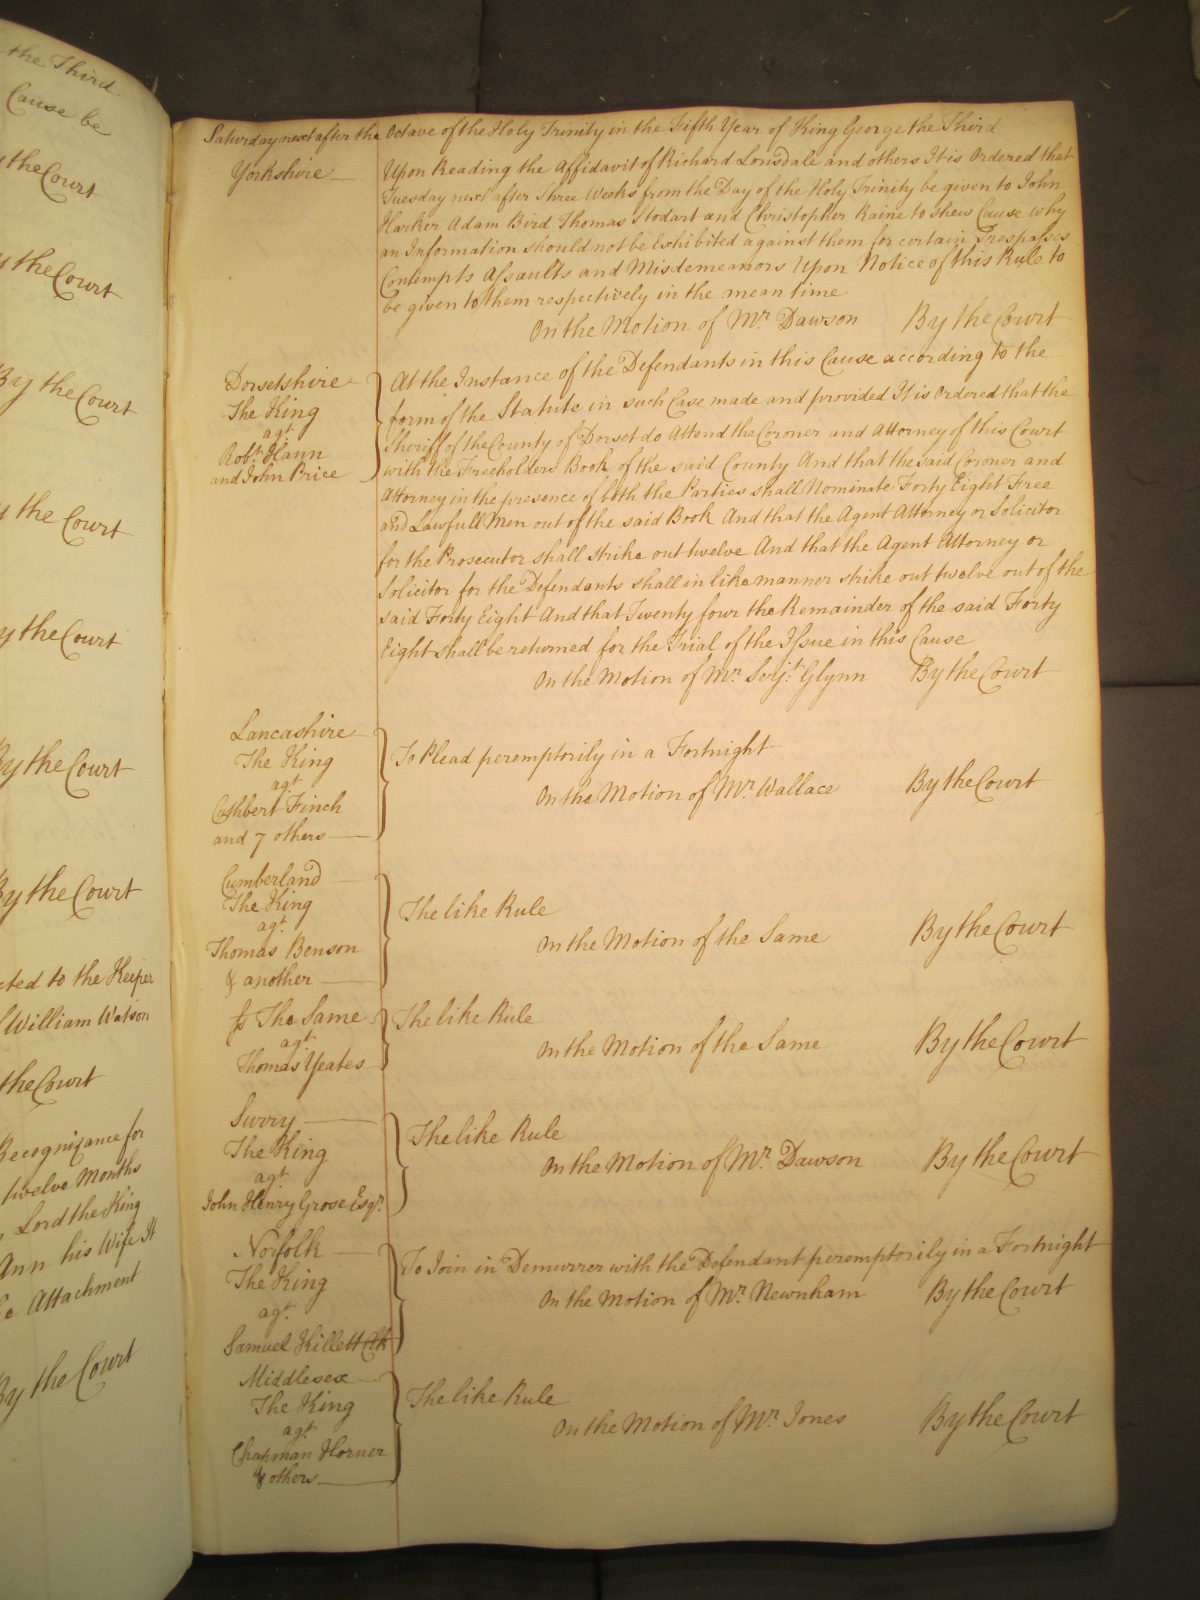 the Third
Cause be
the Court
y the Court
By the Court
y the Court
y the Court
By the Court
By the Court
cted to the Keeper
William Watson
the Court
Recognizance for
twelve Months
Lord the King
Ann his Wife It
Attachment
By the Court
Saturday next after the Octave of the Holy Trinity in the Fifth Year of King George the Third
Yorkshire
Upon Reading the Affidavit of Richard Lonsdale and others It is Ordered that
Tuesday next after Three Weeks from the Day of the Holy Trinity be given to John
Harker Adam Bird Thomas Stodart and Christopher Raine to shew Cause why
an Information should not be Exhibited against them for certain Trespasses
Contempts Assaults and Misdemeanors Upon Notice of this Rule to
be given to them respectively in the mean time
On the Motion of Mr. Dawson By the Court
Dorsetshire
The King
agt
Robt. Hann
and John Price
At the Instance of the Defendants in this Cause according to the
form of the Statute in such Case made and provided It is Ordered that the
Sheriff of the County of Dorset do Attend the Coroner and Attorney of this Court
with the Freeholders Book of the said County And that the said Coroner and
Attorney in the presence of both the Parties shall Nominate Forty Eight Free
and Lawfull Men out of the said Book And that the Agent Attorney or Solicitor
for the Prosecutor shall strike out twelve And that the Agent Attorney or
Solicitor for the Defendants shall in like manner strike out twelve out of the
said Forty Eight And that Twenty four the Remainder of the said Forty
Eight shall be returned for the Trial of the Issue in this Cause
On the Motion of Mr. Serjt. Glynn By the Court
Lancashire
The King
agt
Cuthbert Finch
and 7 others
To Plead peremptorily in a Fortnight
On the Motion of Mr. Wallace By the Court
Cumberland
The King
agt.
Thomas Benson
& another
The like Rule
On the Motion of the Same By the Court
fs The Same
agt
Thomas Yeates
The like Rule
On the Motion of the Same By the Court
Surry
The King
agt.
John Henry Grose Esqr.
The like Rule
On the Motion of Mr. Dawson By the Court
Norfolk
The King
agt.
Samuel Killett Clk
To Join in Demurrer with the Defendant peremptorily in a Fortnight
On the Motion of Mr. Newnham By the Court
Middlesex
The King
agt
Chapman Horner
& others
The like Rule
On the Motion of Mr. Jones By the Court